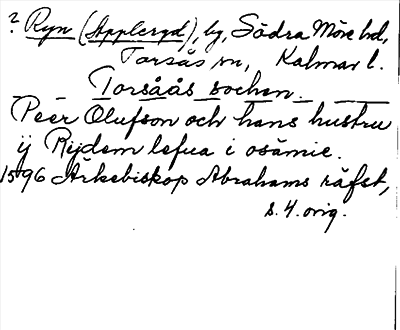 ? Ryn (Appleryd), by, Södra Möre hd,
Torsås sn, Kalmar l.
Torsåås sochen.
Peer Olufson och hans hustru
ij Rydem lefua i osämie.
1596 Ärkebiskop Abrahams räfst,
s. 4. orig.